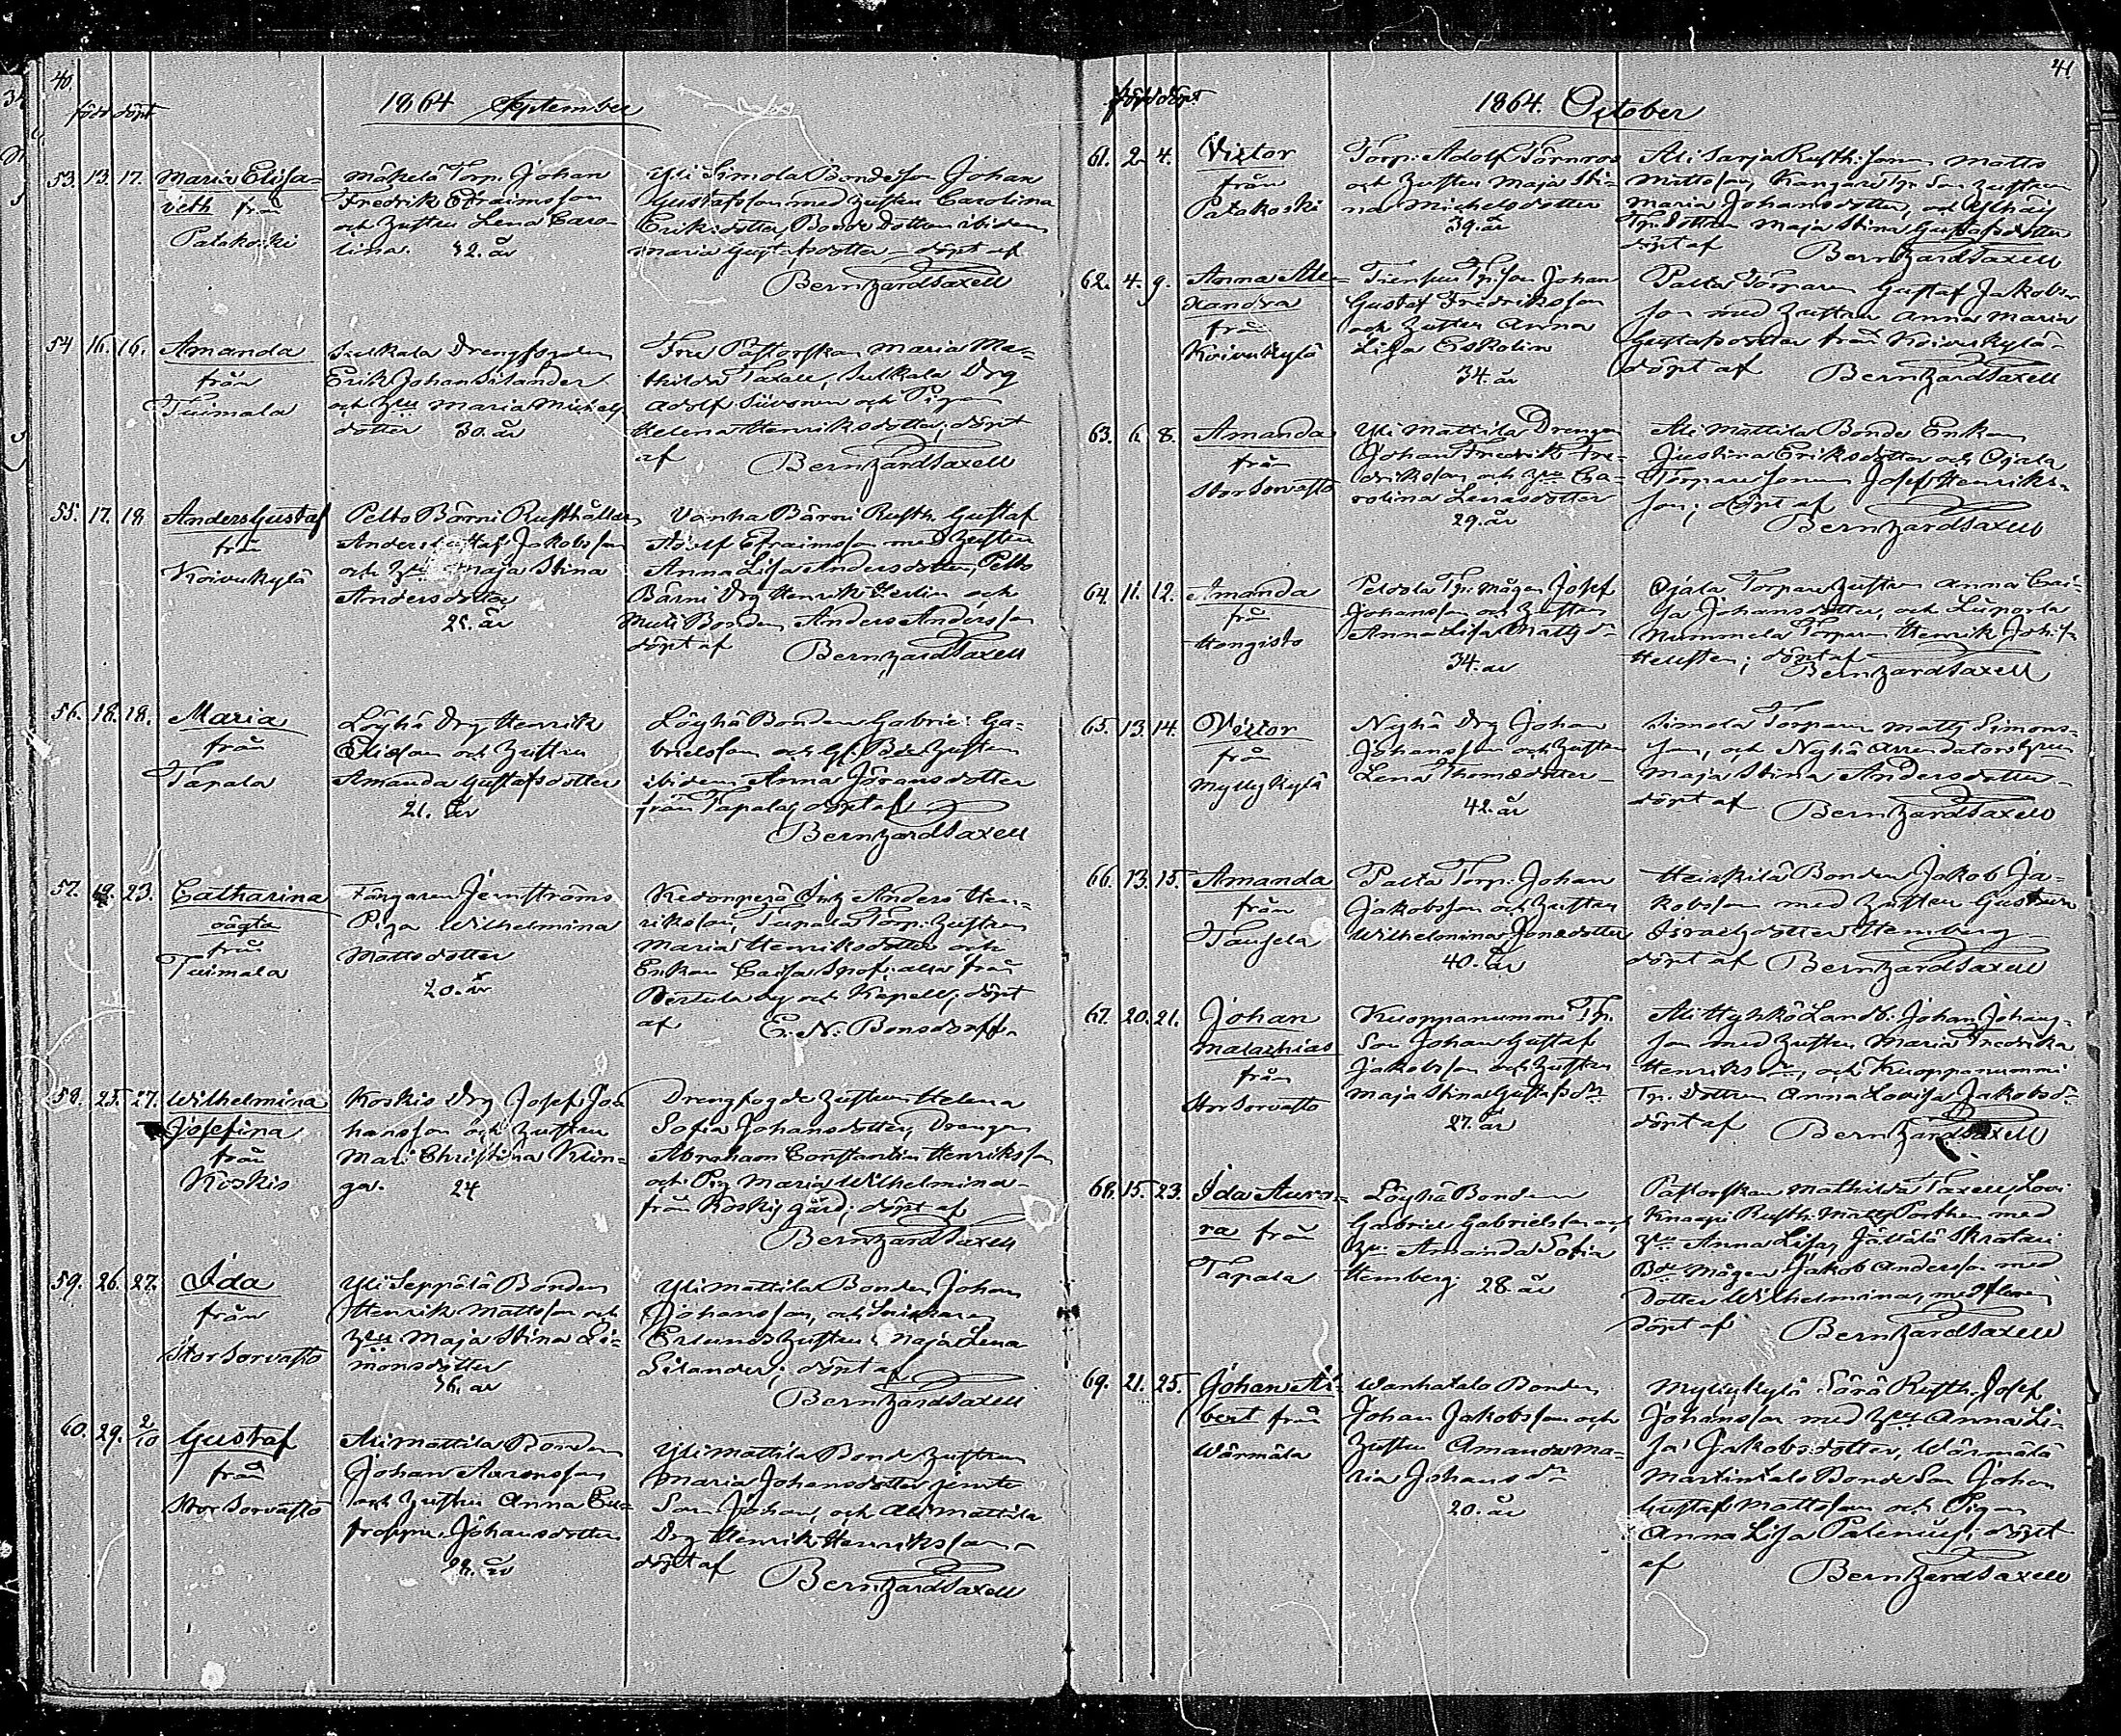 40.
född döpt
1864 September
53. 13. 17. Maria Elisa-
beth från
Palakoski
Mäkelä Torp. Johan
Fredrik Efraimsson
och hustru Lena Caro-
lina. 42. år
Yli Simola Bondeson Johan
Gustafsson med hustru Carolina
Eriksdotter, Bonde Dottren ibidem
Maria Gustafsdotter döpt af
Bernhard Taxell
54 16. 16. Amanda
från
Tuimala
Sulkala Drengfogden
Erik Johan Silander
och Hu Maria Michels
dotter 30. år
Fru Pastorskan Maria Ma-
thilda Taxell, Sulkala Drg
Adolf Siivonen och Pigan
Helena Henriksdotter; döpt
af Bernhard Taxell
55. 17. 18 Anders Gustaf
från
Koivukylä
Pelto Bärni Rusthållar
Anders Gustaf Jakobsson
och Maja Stina
Andersdotter
25. år
Vanha Bärni Rusth. Gustaf
Adolf Efraimsson med hustru
Anna Lisa Andersdotter, Pelto
Bärni Drg Henrik och
Bonden Anders Andersson
döpt af Bernhard Taxell
56. 18. 18. Maria
från
Tapala
Löyhä Drg Henrik
Eliasson och hustru
Amanda Gustafsdotter
21. år
Löyhä Bonden Gabriel Ga-
brielsson och hustru
ibidem Anna Göransdotter
från Tapala, döpt af
Bernhard Taxell
57. 19. 23. Catharina
oägta
från
Tuimala
Färgaren Jernströms
Piga Wilhelmina
Mattsdotter
20. år
Kedonperä Anders Hen-
riksson, Tupala Torp. hustrun
Maria Henriksdotter och
Enkan Caisa alla från
och Kapell; döpt
af E. N. Bonsdorff
58. 25. 27. Wilhelmina
Josefina
från
Koskis
Koskis Drg Josef Jo-
hansson och hustru
Mari Christina Klin-
ga. 24
Drengfogde hustrun Helena
Sofia Johansdotter, Drengen
Abraham Constantin Henriksson
och Pig Maria Wilhelmina
från Koskis gård; döpt af
Bernhard Taxell
59. 26. 27. Ida
från
Stor Sorvasto
Yli Seppälä Bonden
Henrik Mattsson och
Hu Maja Stina Si-
monsdotter
36. år
Yli Mattila Bonden Johan
Johansson, och Snickaren
Erlunds hustru Maja Lena
Silander; döpt af
Bernhard Taxell
60. 29. 2/10 Gustaf
från
Stor Sorvasto
Ali Mattila Bonden
Johan Aaronsson
och hustru Anna Eu-
froppa Johansdotter
28. år
Yli Mattila Bonde hustrun
Maria Johansdotter jemte
Son Johan, och Ali Mattila
Drg Henrik Henriksson
döpt af Bernhard Taxell
41
född döpt
1864. October
61. 2. 4. Victor
från
Palakoski
Torp. Adolf Törnroos
och hustru Maja Sti-
na Michelsdotter
39. år
Ali Sarja Rusth. Sonen Matts
Mattsson, Kangare Tp. Son hustrun
Maria Johansdotter, och
Tp. Dottren Maja Stina Gustafsdotter
döpt af Bernhard Taxell
62. 4. 9. Anna Ale-
xandra
från
Koivukylä
Tp. Son Johan
Gustaf Fredriksson
och hustru Anna
Lisa Eskolin
34. år
Palta Torparen Gustaf Jakobs-
son med hustru Anna Maria
Gustafsdotter från Koivukylä
döpt af Bernhard Taxell
63. 6. 8. Amanda
från
Stor Sorvasto
Yli Mattila Drengen
Johan Fredrik Fre-
driksson och Hu Ca-
rolina Lenasdotter
29. år
Ali Mattila Bonde Enkan
Justina Eriksdotter och Ojala
Torpare Sonen Josef Henriks-
son; döpt af
Bernhard Taxell
64. 11. 12. Amanda
från
Hongisto
Peldola Tp. Mågen Josef
Johansson och hustru
Anna Lisa Mattsdr
34. år
Ojala Torpare hustrun Anna Cai-
sa Johansdotter, och
Nummela Torparen Henrik Joh.
döpt af
Bernhard Taxell
65. 13. 14. Victor
från
Myllykylä
Nyhä Drg Johan
Johansson och hustru
Lena Thomedotter
42. år
Simola Torparen Matts Simons-
son, och Nyhä Arrendators hustru
Maja Stina Andersdotter
döpt af Bernhard Taxell
66. 13. 15. Amanda
från
Tausela
Palta Torp. Johan
Jakobsson och hustru
Wilhelmina Jonedotter
40. år
Heiskilä Bonden Jakob Ja-
kobsson med hustru Gustava
Israelsdotter Hemberg
döpt af Bernhard Taxell
67. 20. 21. Johan
Malachias
från
Stor Sorvasto
Kuoppanummi Tp.
Son Johan Gustaf
Jakobsson och hustru
Maja Stina Gustafsdr
27. år
Ali Hyhkö Landb. Johan Johans-
son med hustru Maria Fredrika
Henriksdr, och Kuoppanummi
Tp. Dottren Anna Lovisa Jakobsdr
döpt af Bernhard Taxell
68. 15. 23. Ida Auro-
ra från
Tapala
Löyhä Bonden
Gabriel Gabrielsson och
Hu Amanda Sofia
Hemberg. 28. år
Pastorskan Mathilda Taxell,
Knaapi Rusth. Matts Porthen med
Hu Anna Lisa,
Mågen Jakob Andersson med
Dotter Wilhelmina, med flere;
döpt af Bernhard Taxell
69. 21. 25. Johan Al-
bert från
Wärmälä
Wanhatalo Bonden
Johan Jakobsson och
hustru Amanda Ma-
ria Johansdr
20. år
Myllykylä Rusth. Josef
Johansson med Hu Anna Li-
sa Jakobsdotter, Wärmälä
Martintalo Bonde Son Johan
Gustaf Mattsson och Pigan
Anna Lisa Palenius; döpt
af Bernhard Taxell